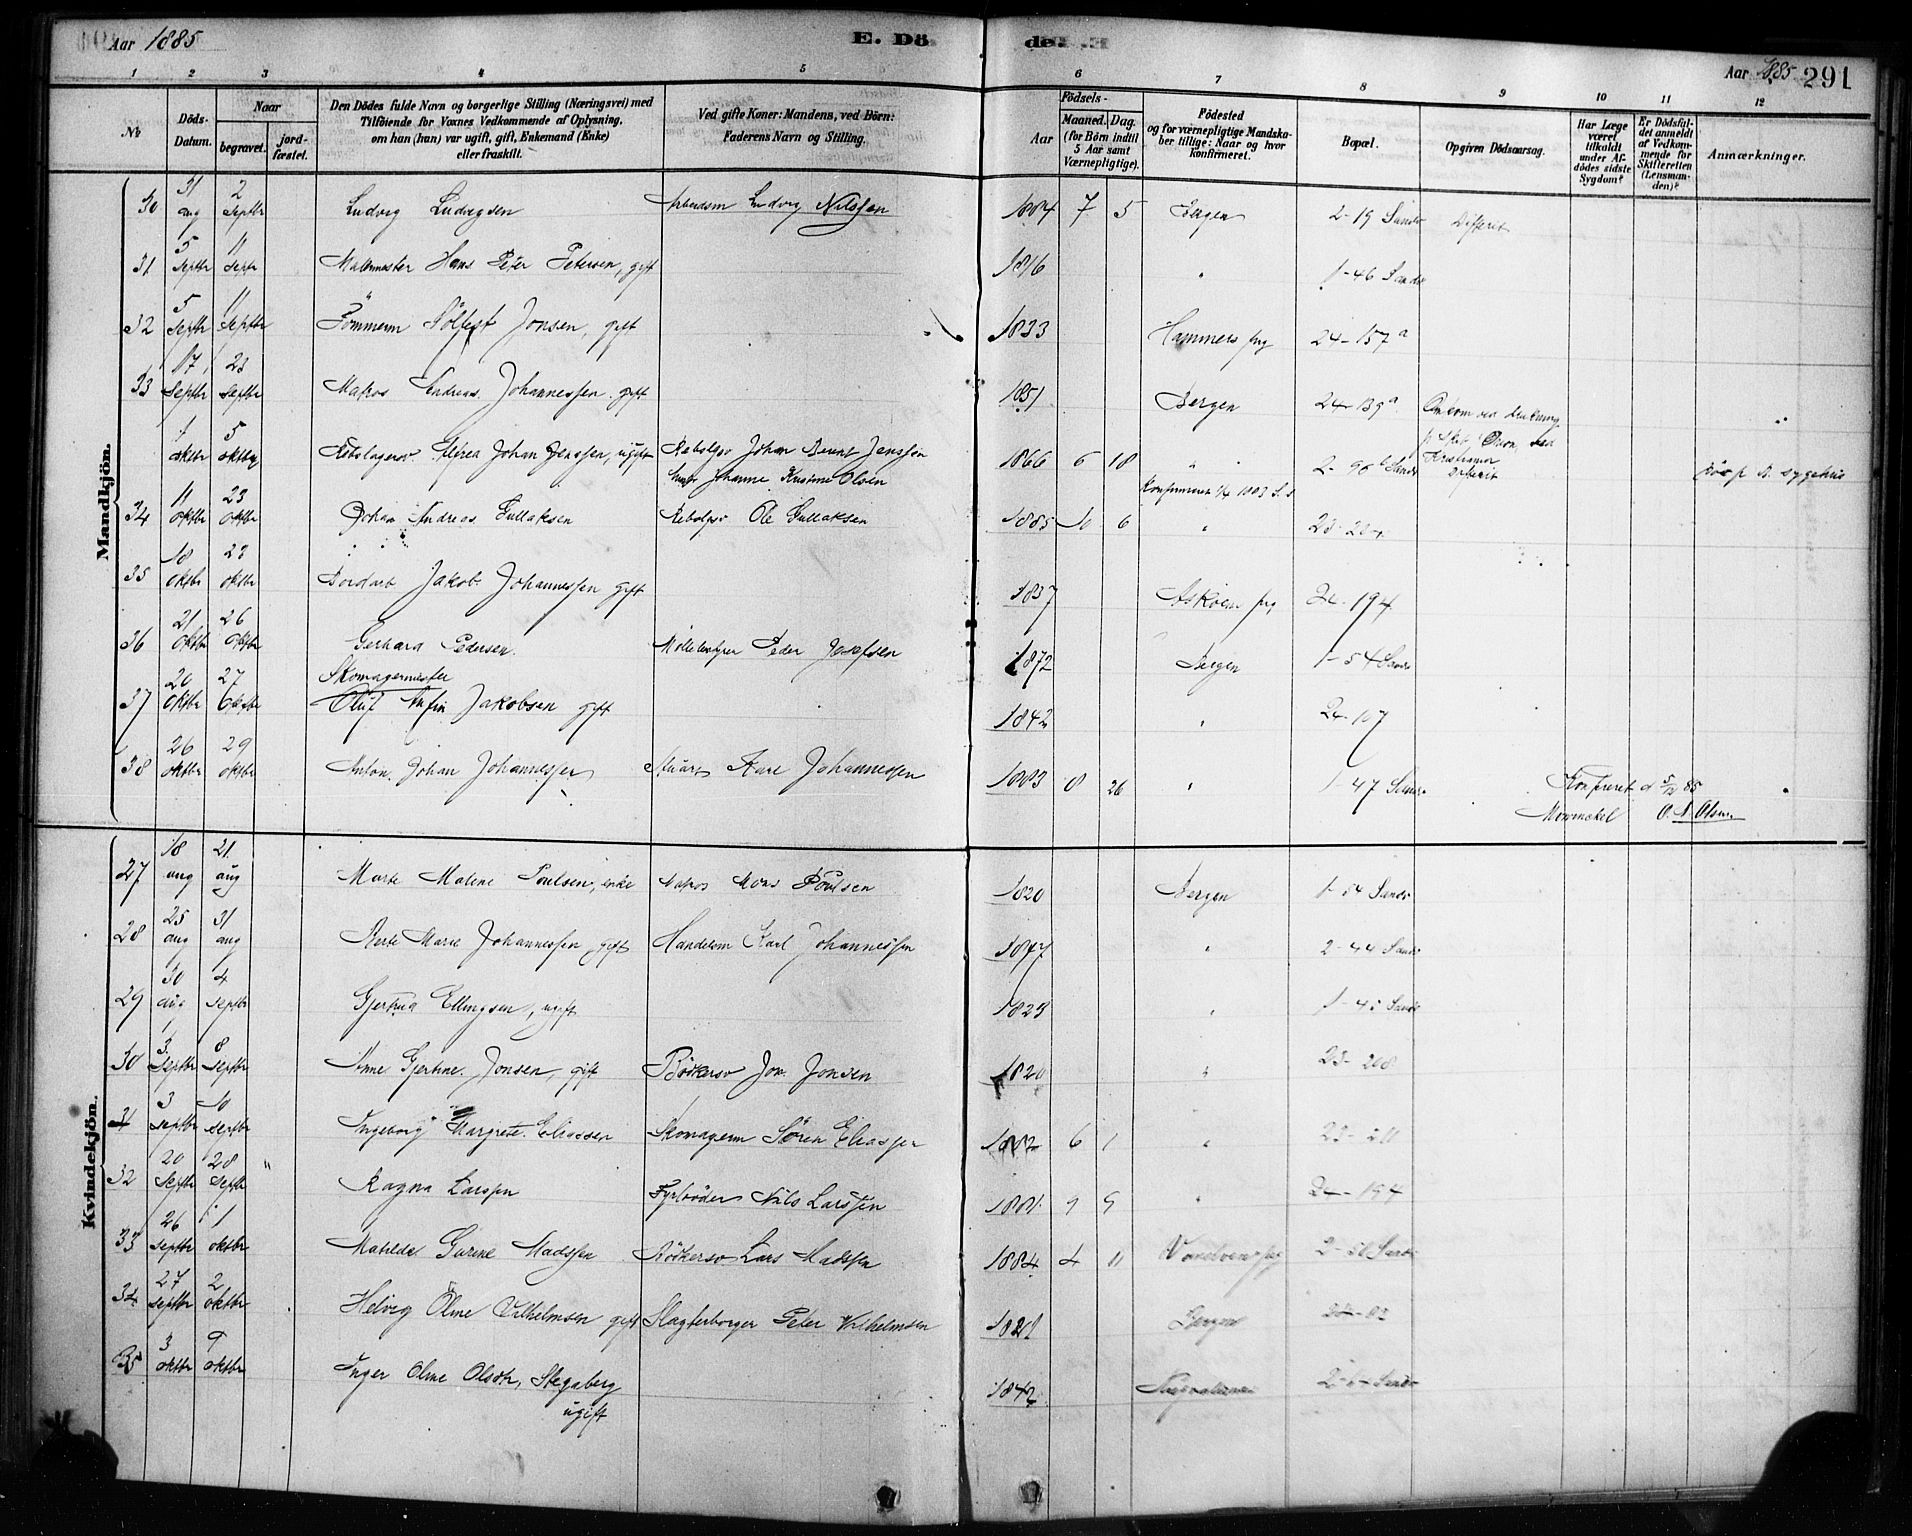 Aar 1885
E. Dö
de.
Aar 1885
291
1 2 3 4 5 6 7 8 9 10 11 12
No
Döds-
Datum.
Naar
begravet.
jord-
fæstet.
Den Dödes fulde Navn og borgerlige Stilling (Næringsvei) med
Tilföiende for Voxnes Vedkommende af Oplysning,
om han (hun) var ugift, gift, Enkemand (Enke)
eller fraskilt.
Ved gifte Koner: Mandens, ved Börn:
Faderens Navn og Stilling.
Födsels-
Aar
Maaned. Dag.
(for Börn indtil
5 Aar samt
Værnepligtige).
Födested
og for værnepligtige Mandska-
ber tillige: Naar og hvor
konfirmeret.
Bopæl.
Opgiven Dödsaarsag.
Har Læge
været
tilkaldt
under Af-
dödes sidste
Sygdom?
Er Dödsfal-
det anmeldt
af Vedkom-
mende for
Skifteretten
(Lensman-
den)?
Anmærkninger.
Mandkjön.
30 31 aug 2 Septbr Ludvig Ludvigsen Arbeidsm Ludvig Nilssen 1884 7 5 Bergen 2-19 Sandv Difterit
31 5 Septbr 11 Septbr Hans Peter Petersen, gift 1816 " 1-46 Sandv
32 5 Septbr 11 Septbr Tömmerm Sölfest Jonsen, gift 1833 Hammers prg 24-157a
33 17 Septbr 23 Septbr Matros Andreas Johannessen gift 1851 Bergen 24-139a
1 oktbr 5 oktbr Johan Jenssen, ugift Rebslgsv Johan Bernt Jenssen 1866 6 18 " " 2-96b Sandv
Johanne Kristine Olsen
34 11 oktbr 23 oktbr Johan Andreas Gullaksen Rebslgsv Ole Gullaksen 1885 10 6 "
35 18 oktbr 23 oktbr Jakob Johannessen gift 1837 Askøen prg 24-194
36 21 oktbr 26 oktbr Gerhard Pedersen. Peder Josefsen 1872 Bergen 1-54 Sandv
Skomagermester
37 20 oktbr 27 oktbr Oluf Anfin Jakobsen gift 1842 " 24-107
38 26 oktbr 29 oktbr Anton Johan Johannessen Stuart Karl Johannessen 1883 8 26 " 1-47 Sandv
Konfreret d 5/12 85
Mowinckel O. N Olsen
Kvindekjön.
27 18 aug 21 aug Marte Malene Poulsen, enke Matros Mons Poulsen 1820 Bergen 1-54 Sandv
28 25 aug 31 aug Berte Marie Johannessen, gift Handelsm Karl Johannessen 1847 " 2-44 Sandv
29 30 aug 4 septbr Gjertrud Ellingsen, ugift 1825 " 1-45 Sandv
30 3 Septbr 8 Septbr Anne Gjertine Jonsen, gift Bödkersv Jon Jonsen 1820 " 23-208
31 3 septbr 10 septbr Ingeborg Margrete Eliassen Skomagerm Sören Eliassen 1882 6 1 "
32 20 Septbr 28 Septbr Ragna Larssen Fyrböder Nils Larssen 9 9 " 24-194
33 26 septbr 1 oktbr Matilde Gurine Madssen Bödkersv Lars Madssen 1884 4 11 2-50 Sandv
34 27 septbr 2 oktbr Helvig Oline Vilhelmsen gift Slagterborger Peter Vilhelmsen 1821 Bergen
35 3 oktbr 9 oktbr Inger Oline Olsdtr, Stegaberg 1842
ugift